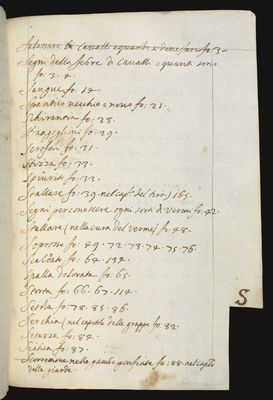 Salassare li Cavalli a quando si deve fare fo. 3.
Segni della febre di Cavalli e quanti sono
fo. 3. 4.
Sangue fo. 14.
Spavenio vecchio e novo fo. 21.
Schirantia fo: 28.
Stranguglioni fo: 29.
Scrofole fo. 31.
Stizza fo: 33.
Spiurito fo: 33.
Spallare fo. 39. nel cap.º del 165.
Segni per conoscere ogni sorte di vermi fo. 42.
Stallare (nella cura del verme) fo. 48.
Soprosso fo: 49. 72. 73. 74. 75. 76
Scaldato fo: 64. 134.
Spalla dolorata fo. 65.
Storta fo: 66. 67. 114.
Setola fo: 78. 85. 86.
Serchia (nel capitolo delle grappe fo: 82.
Setazze fo: 84.
Sciatica fo: 87.
Scorrentione nelle gambe gonfiate fo: 88. nel capº
delle giarde.
S